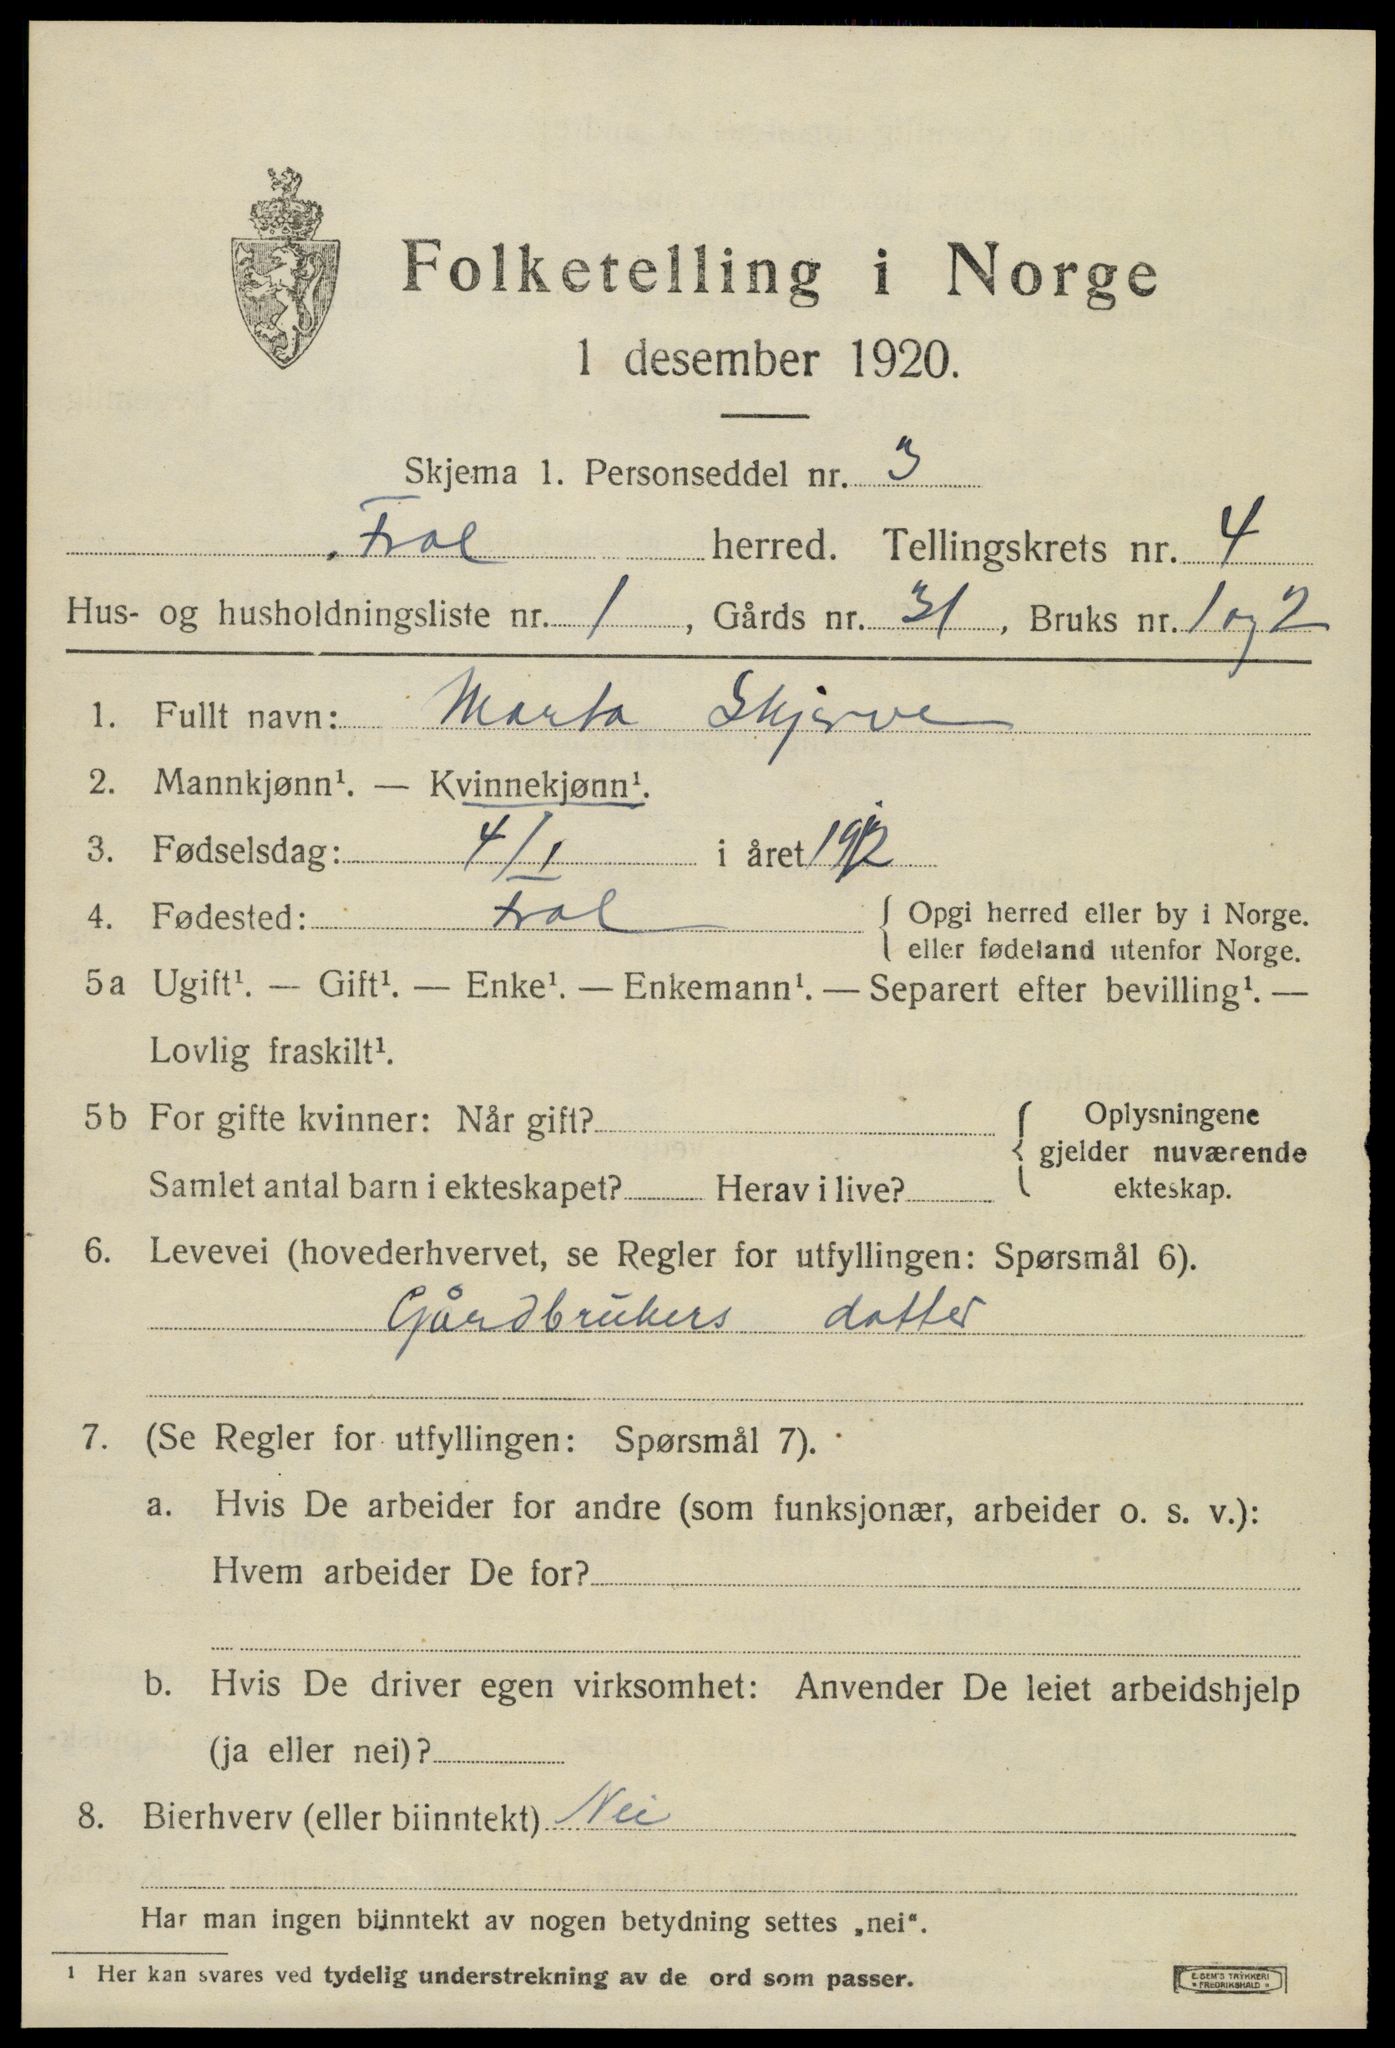 Folketelling i Norge
1 desember 1920.
Skjema 1. Personseddel nr. 3
Frol herred. Tellingskrets nr. 4
Hus- og husholdningsliste nr. 1, Gårds nr. 31, Bruks nr. 1 og 2
1. Fullt navn: Marta Skjerve
2. Mannkjønn¹. — Kvinnekjønn¹.
3. Fødselsdag: 4/1 i året 1912
4. Fødested: Frol { Opgi herred eller by i Norge.
eller fødeland utenfor Norge.
5a Ugift¹. — Gift¹. — Enke¹. — Enkemann¹. — Separert efter bevilling¹. —
Lovlig fraskilt¹.
5b For gifte kvinner: Når gift? { Oplysningene
gjelder nuværende
Samlet antal barn i ekteskapet? Herav i live? ekteskap.
6. Levevei (hovederhvervet, se Regler for utfyllingen: Spørsmål 6).
Gårdbrukers datter
7. (Se Regler for utfyllingen: Spørsmål 7).
a. Hvis De arbeider for andre (som funksjonær, arbeider o. s. v.):
Hvem arbeider De for?
b. Hvis De driver egen virksomhet: Anvender De leiet arbeidshjelp
(ja eller nei)?
8. Bierhverv (eller biinntekt) Nei
Har man ingen biinntekt av nogen betydning settes „nei".
¹ Her kan svares ved tydelig understrekning av de ord som passer.
E. SEM'S TRYKKERI
FREDRIKSHALD